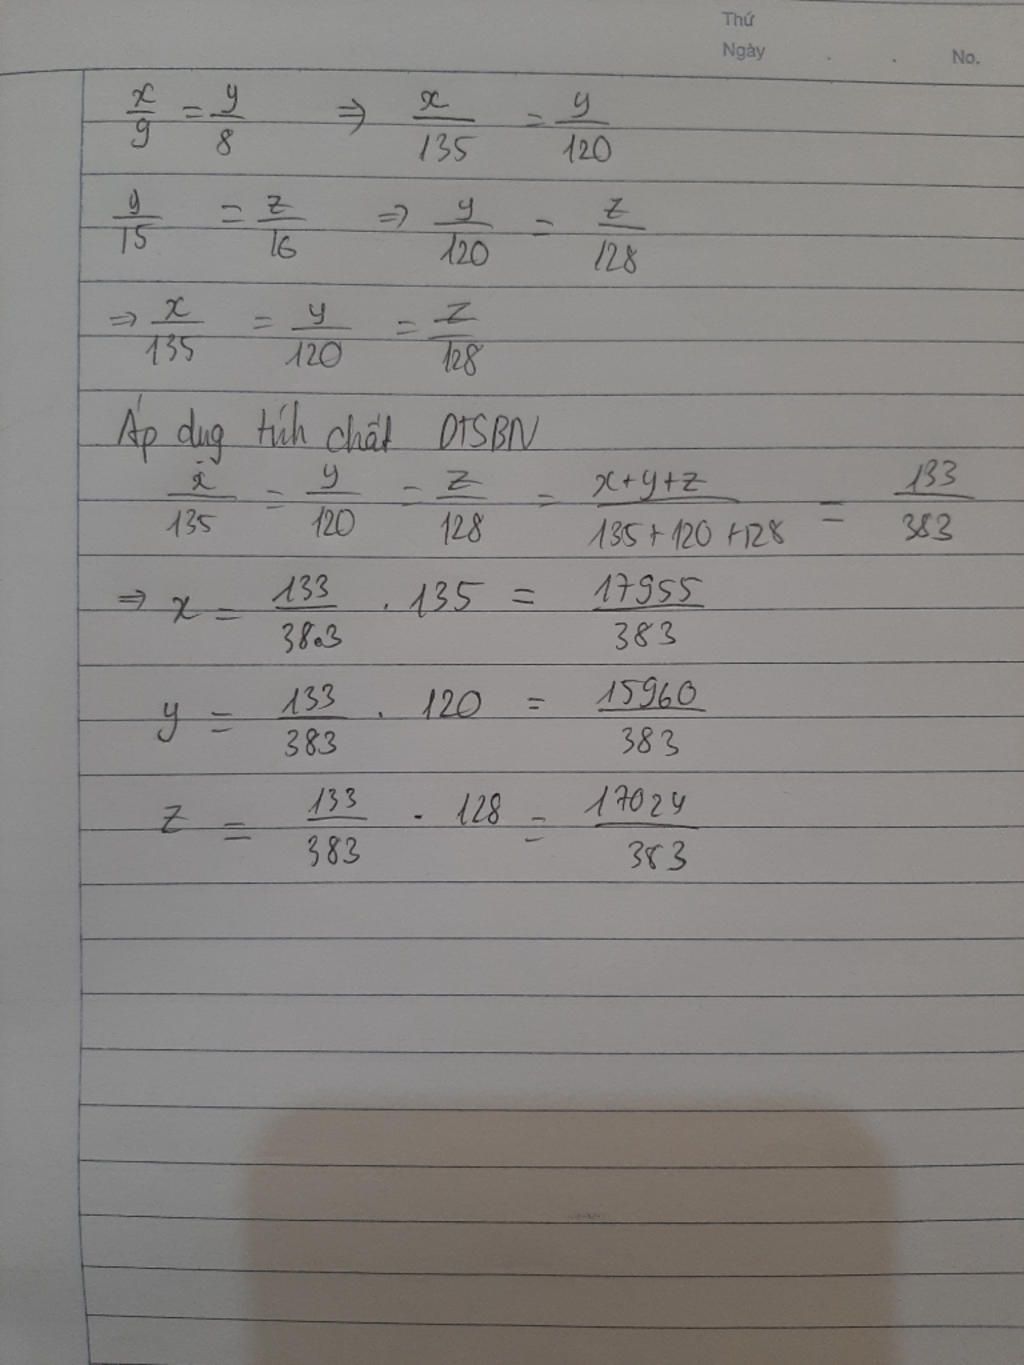 Thứ
Ngày . . No.
x/9 = y/8 ⇒ x/135 = y/120
y/15 = z/16 ⇒ y/120 = z/128
⇒ x/135 = y/120 = z/128
Áp dug tính chất DTSBN
x/135 = y/120 = z/128 = x+y+z/135+120+128 = 133/383
⇒ x = 133/383 . 135 = 17955/383
y = 133/383 . 120 = 15960/383
z = 133/383 . 128 = 17024/383